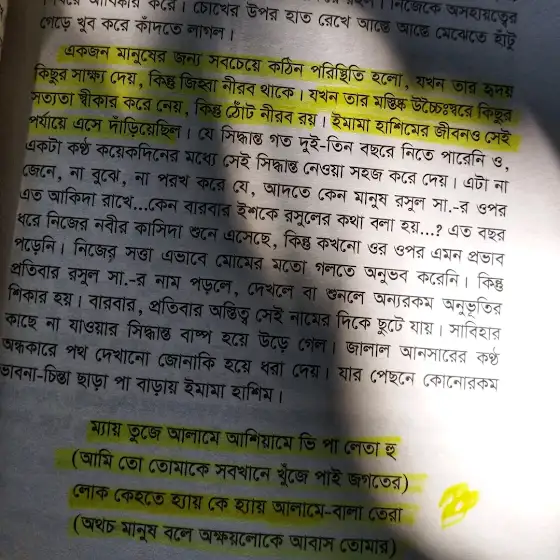 নিজেকে অসহায়ত্বের
পেড়ে খুব করে কাঁদতে লাগল।
একজন মানুষের জন্য সবচেয়ে কঠিন পরিস্থিতি হলো, যখন তার হৃদয়
কিছুর সাক্ষ্য দেয়, কিন্তু জিহ্বা নীরব থাকে। যখন তার মস্তিষ্ক উচ্চৈঃস্বরে কিছুর
সত্যতা স্বীকার করে নেয়, কিন্তু ঠোঁট নীরব রয়। ইমামা হাশিমের জীবনও সেই
পর্যায়ে এসে দাঁড়িয়েছিল। যে সিদ্ধান্ত গত দুই-তিন বছরে নিতে পারেনি ও,
একটা কণ্ঠ কয়েকদিনের মধ্যে সেই সিদ্ধান্ত নেওয়া সহজ করে দেয়। এটা না
জেনে, না বুঝে, না পরখ করে যে, আদতে কেন মানুষ রসুল সা.-র ওপর
এত আকিদা রাখে...কেন বারবার ইশকে রসুলের কথা বলা হয়...? এত বছর
ধরে নিজের নবীর কাসিদা শুনে এসেছে, কিন্তু কখনো ওর ওপর এমন প্রভাব
পড়েনি। নিজের সত্তা এভাবে মোমের মতো গলতে অনুভব করেনি। কিন্তু
প্রতিবার রসুল সা.-র নাম পড়লে, দেখলে বা শুনলে অন্যরকম অনুভূতির
শিকার হয়। বারবার, প্রতিবার অস্তিত্ব সেই নামের দিকে ছুটে যায়। সাবিহার
কাছে না যাওয়ার সিদ্ধান্ত বাষ্প হয়ে উড়ে গেল। জালাল আনসারের কণ্ঠ
অন্ধকারে পথ দেখানো জোনাকি হয়ে ধরা দেয়। যার পেছনে কোনোরকম
ভাবনা-চিন্তা ছাড়া পা বাড়ায় ইমামা হাশিম।
ম্যায় তুজে আলামে আশিয়ামে ভি পা লেতা হু
(আমি তো তোমাকে সবখানে খুঁজে পাই জগতের)
লোক কেহতে হ্যায় কে হ্যায় আলামে-বালা তেরা
(অথচ মানুষ বলে অক্ষয়লোকে আবাস তোমার)